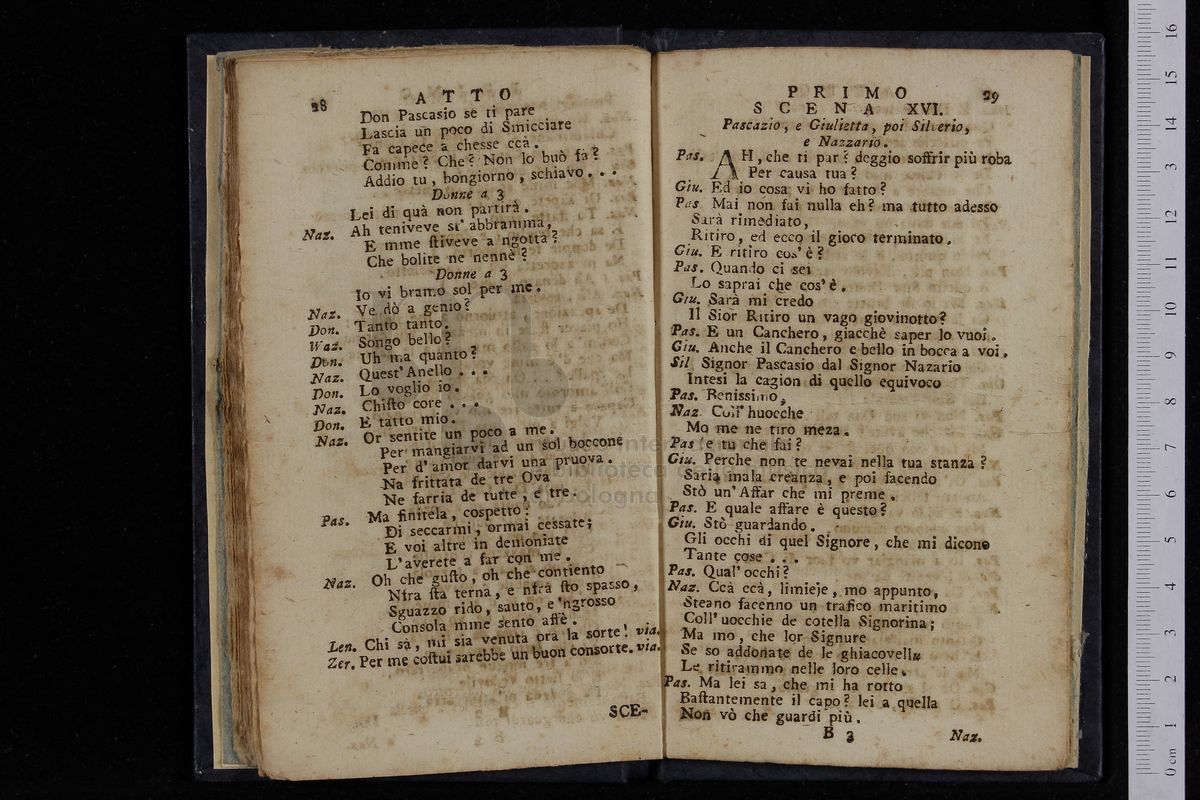 28 ATTO
Don Pascasio se ti pare
Lascia un poco di Smicciare
Fa capece a chesse ccà.
Comme? Che? Non lo buò fa?
Addio tu, bongiorno, schiavo...
Donne a 3
Lei di quà non partirà.
Naz. Ah teniveve st' abbramma,
E mme ſtiveve a ngotta?
Che bolite ne nenne?
Donne a 3
Io vi bramo sol per me.
Naz. Ve dò a genio?
Don. Tanto tanto.
Waz. Songo bello?
Don. Uh ma quanto?
Naz. Quest' Anello...
Don. Lo voglio io.
Naz. Chiſto core...
Don. E tatto mio.
Naz. Or sentite un poco a me.
Per mangiarvi ad un sol boccone
Per d'amor darvi una pruova.
Na frittata de tre Ova
Ne farria de tutte, e tre.
Pas. Ma finitela, cospetto!
Di seccarmi, ormai cessate;
E voi altre in demoniate
L'averete a far con me.
Naz. Oh che guſto, oh che contiento
Nfra ſta terna, e nfra ſto spasso,
Sguazzo rido, sauto, e 'ngrosso
Consola mme sento affè.
Len. Chi sà, mi sia venuta ora la sorte! via.
Zer. Per me coſtui sarebbe un buon consorte. via.
SCE-
PRIMO 29
SCENA XVI.
Pascazio, e Giulietta, poi Silverio,
e Nazzario.
Pas. AH, che ti par? deggio soffrir più roba
Per causa tua?
Giu. Ed io cosa vi ho fatto?
Pas Mai non fai nulla eh? ma tutto adesso
Sarà rimediato,
Ritiro, ed ecco il gioco terminato.
Giu. E ritiro cos' è?
Pas. Quando ci sei
Lo saprai che cos' è.
Giu. Sarà mi credo
Il Sior Ritiro un vago giovinotto?
Pas. E un Canchero, giacchè saper lo vuoi.
Giu. Anche il Canchero e bello in bocca a voi.
Sil Signor Pascasio dal Signor Nazario
Intesi la cagion di quello equivoco
Pas. Benissimo,
Naz. Coll' huocche
Mo me ne tiro meza.
Pas e tu che fai?
Giu. Perche non te nevai nella tua stanza?
Saria mala creanza, e poi facendo
Stò un' Affar che mi preme.
Pas. E quale affare è questo?
Giu. Stò guardando.
Gli occhi di quel Signore, che mi dicono
Tante cose...
Pas. Qual' occhi?
Naz. Ccà ccà, limieje, mo appunto,
Steano facenno un trafico maritimo
Coll' uocchie de cotella Signorina;
Ma mo, che lor Signure
Se so addonate de le ghiacovelle
Le ritirammo nelle loro celle.
Pas. Ma lei sa, che mi ha rotto
Baſtantemente il capo? lei a quella
Non vò che guardi più.
B 3 Naz.